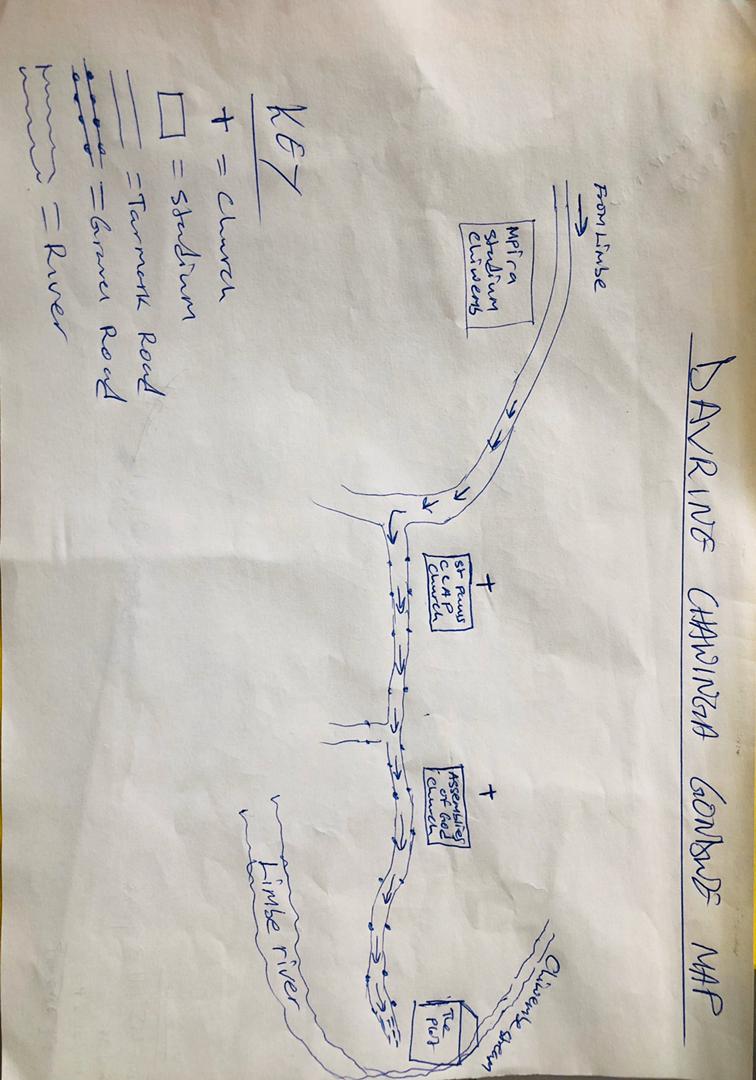 DAVRINE CHAWINGA GONDWE MAP
From Limbe
Mpira
Stadium
Chiwemb
St Pauls
CCAP
Church
Assemblies
of God
Church
The
Plot
Chiwembe stream
Limbe river
KEY
+ = Church
= Stadium
= Tarmark Road
= Gravel Road
= River